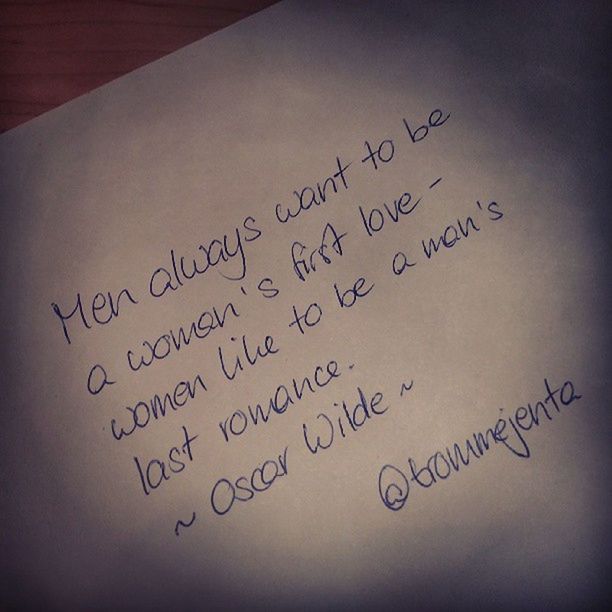 Men always want to be
a woman's first love -
women like to be a man's
last romance.
~ Oscar Wilde ~
@trommejenta